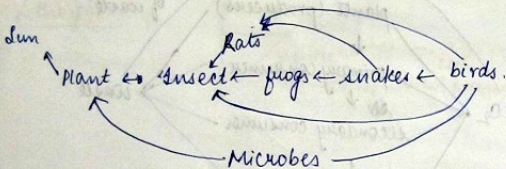 Sun
Rats
Plant ↔ Insect ← frogs ← snakes ← birds.
Microbes